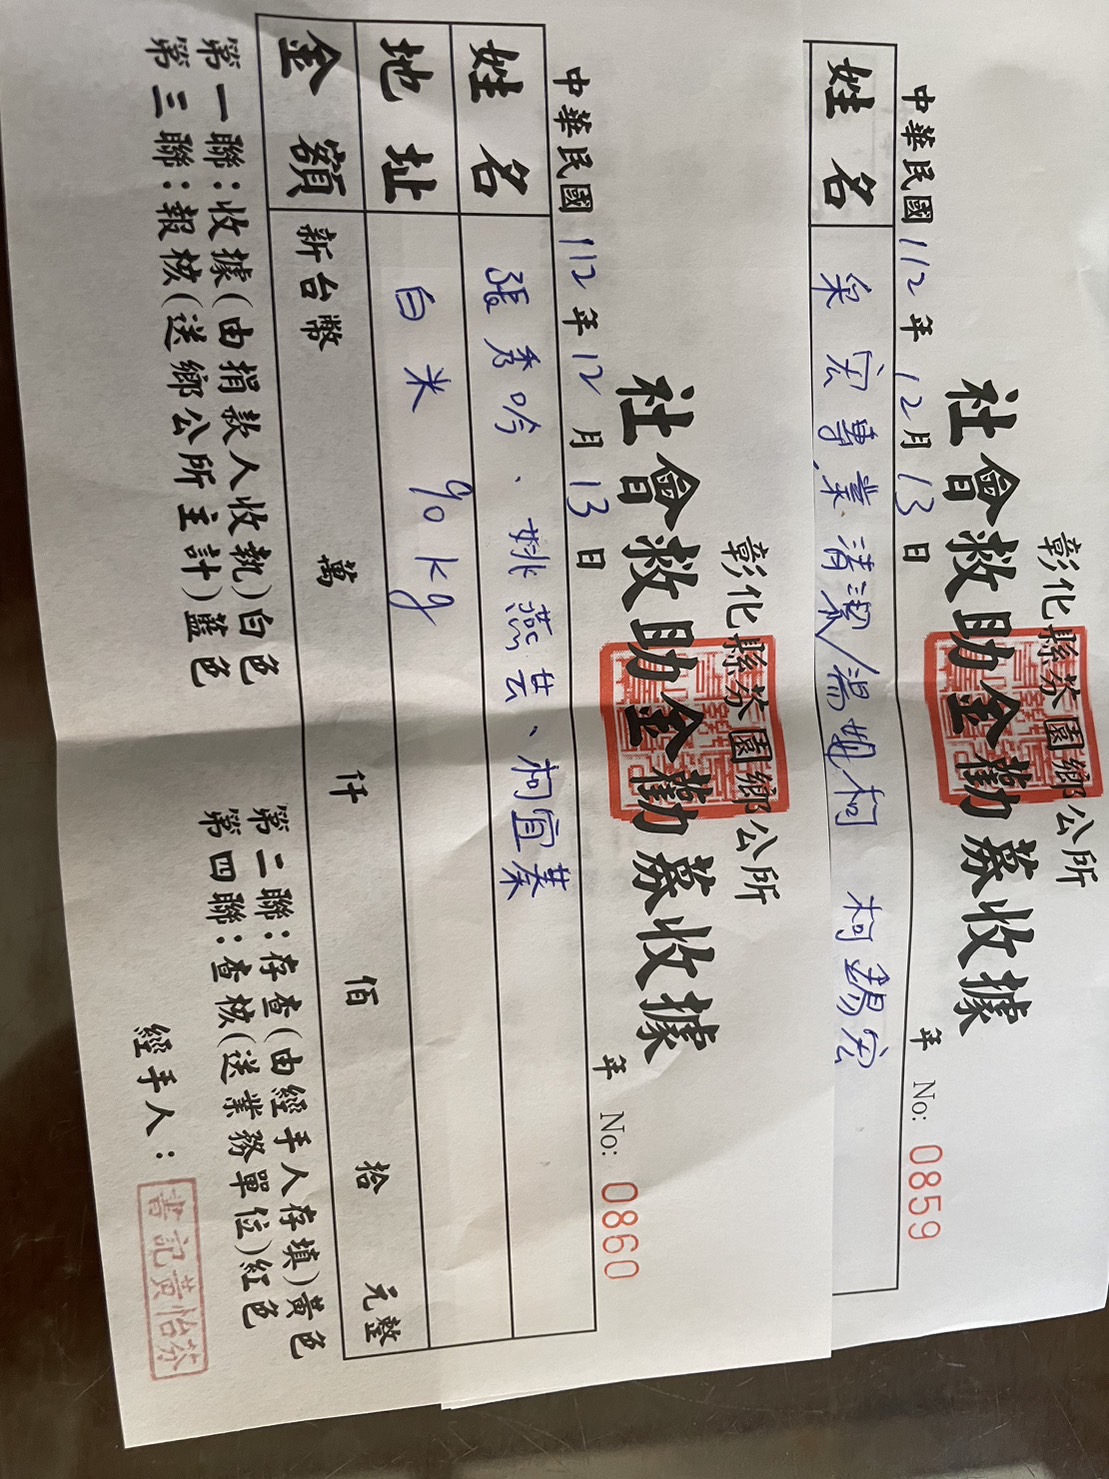 彰化縣芬園鄉公所
社會救助金勸募收據
中華民國112年12月13日 年 No: 0859
姓名 采宏專業清潔/湯妲柯 柯錫宏
彰化縣芬園鄉公所
社會救助金勸募收據
中華民國112年12月13日 年 No: 0860
姓名 張秀吟、姚燕芸、柯宜蓁
地址 白米 90 kg
金額 新台幣 萬 仟 佰 拾 元整
第一聯:收據(由捐款人收執)白色 第二聯:存查(由經手人存填)黃色
第三聯:報核(送鄉公所主計)藍色 第四聯:查核(送業務單位)紅色
經手人: 書記黃怡芬